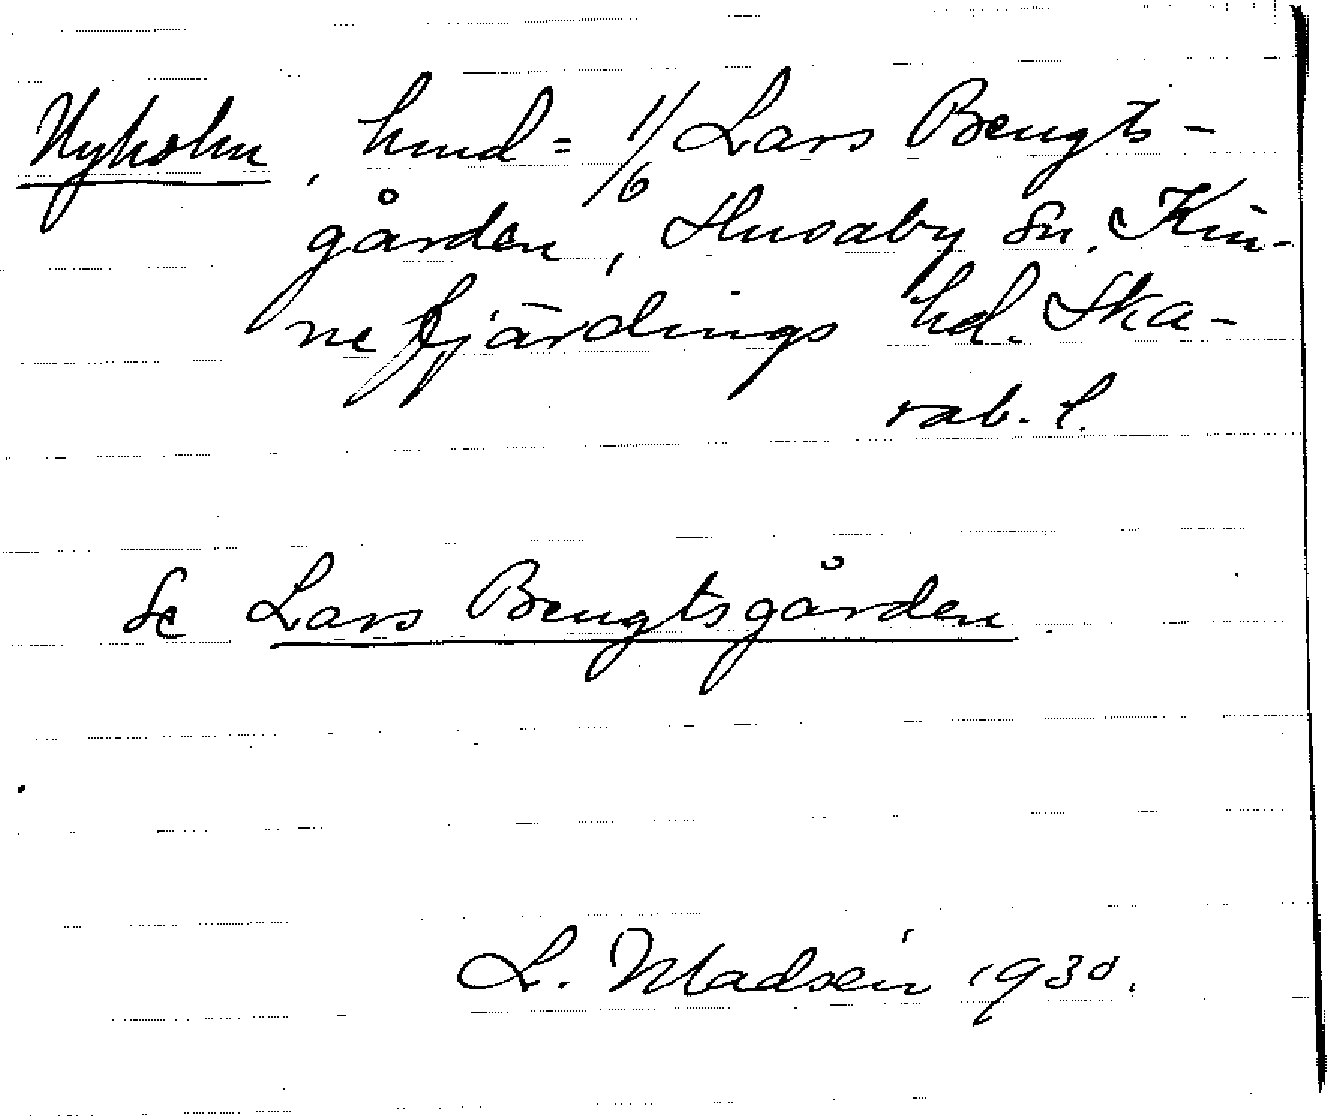 Nyholm, hmd = 1/6 Lars Bengts-
gården, Husaby sn. Kin-
nefjärdings hd. Ska-
rab. l.
Se Lars Bengtsgården.
L. Madsén 1930.